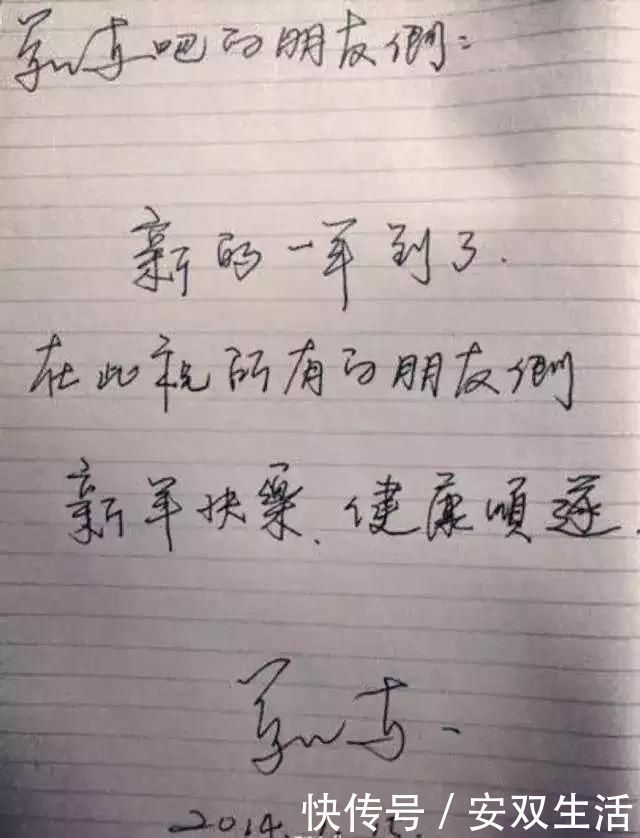 吧的朋友們：
新的一年到了.
在此祝所有的朋友們
新年快樂、健康順遂.
2014.
快传号 / 安双生活